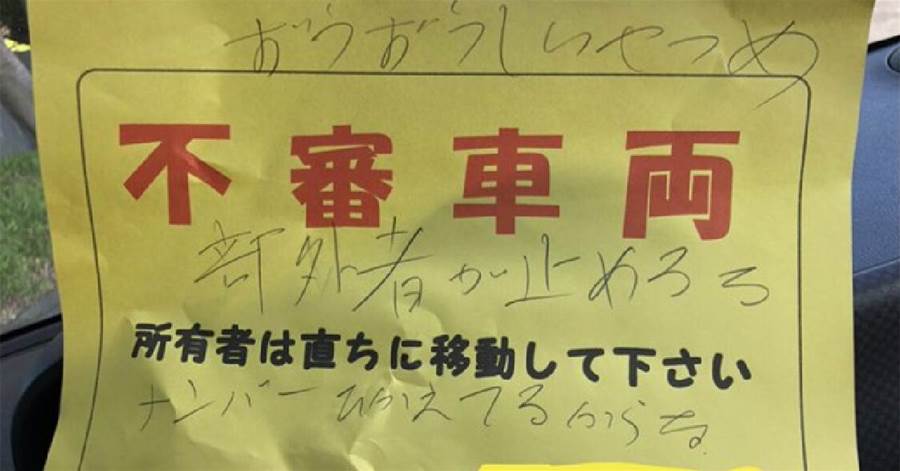 おうおうしいやつめ
不審車両
部外者が止めるる
所有者は直ちに移動して下さい
ナンバーひかえてるからな